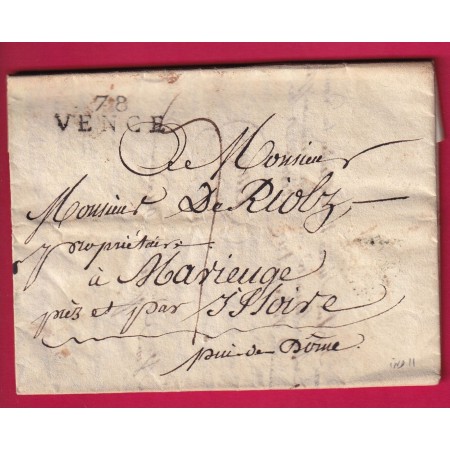 78
VENCE
A Monsieur
Monsieur De Riolz
propriétaire
à Marieuge
près et par Issoire
pui-de-Dôme